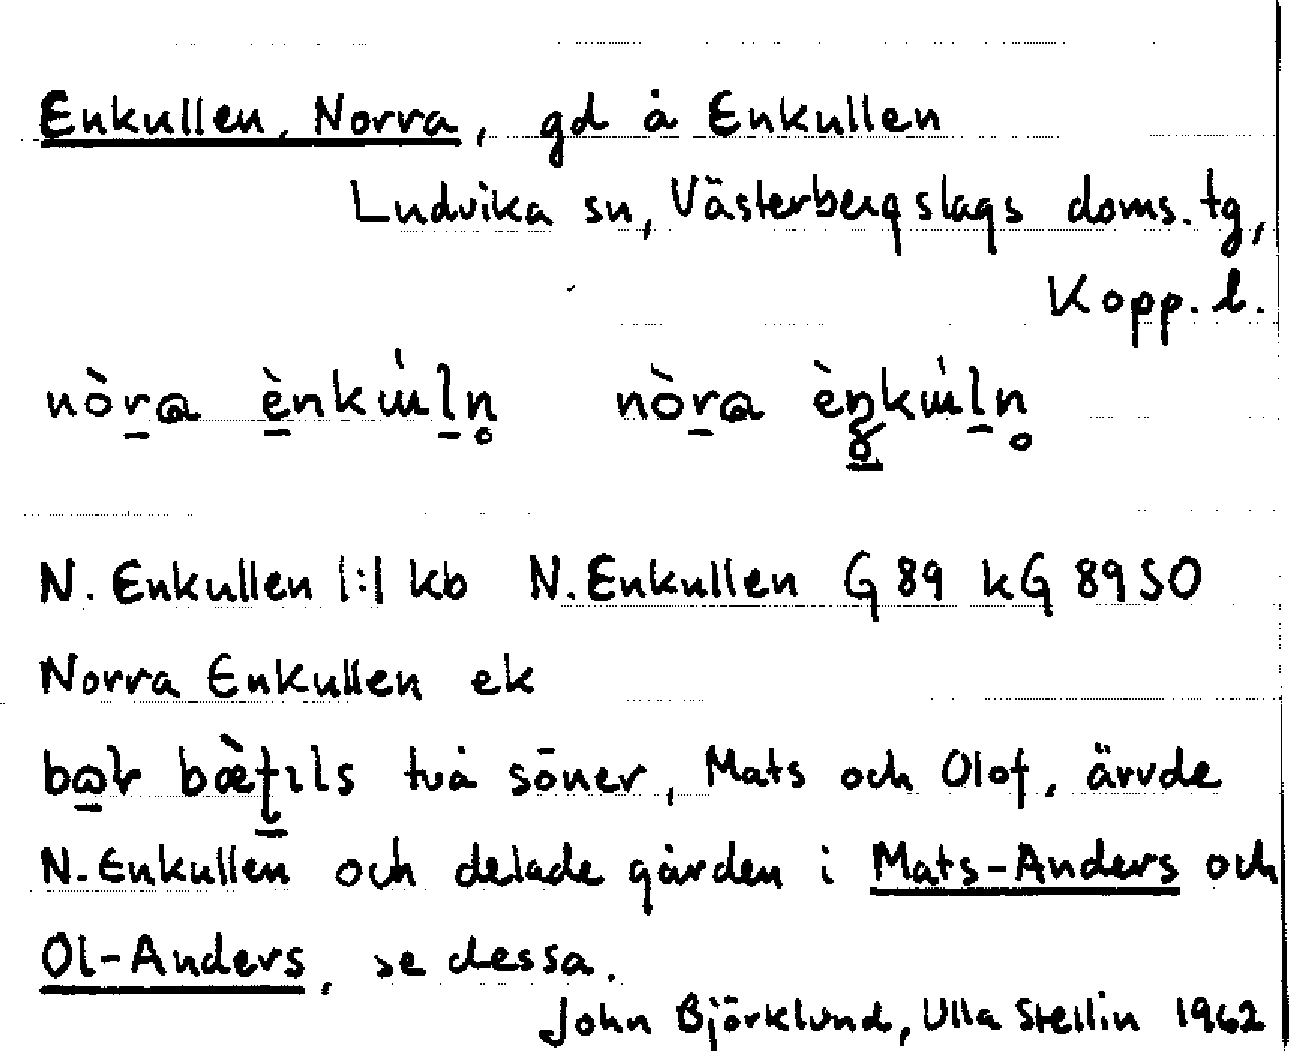 Enkullen, Norra, gd å Enkullen
Ludvika sn, Västerbergslags doms. tg,
Kopp. l.
nòra ènku̇ln̥ nòra èŋku̇ln̥
N. Enkullen 1:1 kb N. Enkullen G 89 kG 89 SO
Norra Enkullen ek
två söner, Mats och Olof, ärvde
N. Enkullen och delade gården i Mats-Anders och
Ol-Anders, se dessa.
John Björklund, Ulla Stellin 1962